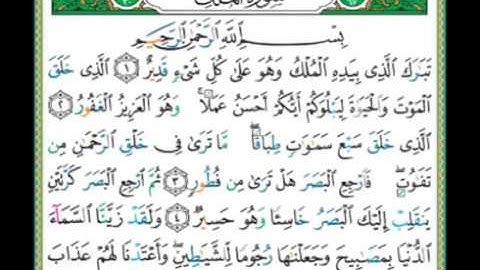 سُورَةُ الْمُلْكِ
بِسْمِ اللَّهِ الرَّحْمَٰنِ الرَّحِيمِ
تَبَٰرَكَ ٱلَّذِى بِيَدِهِ ٱلْمُلْكُ وَهُوَ عَلَىٰ كُلِّ شَىْءٍ قَدِيرٌ ۝١ ٱلَّذِى خَلَقَ
ٱلْمَوْتَ وَٱلْحَيَوٰةَ لِيَبْلُوَكُمْ أَيُّكُمْ أَحْسَنُ عَمَلًا ۚ وَهُوَ ٱلْعَزِيزُ ٱلْغَفُورُ ۝٢
ٱلَّذِى خَلَقَ سَبْعَ سَمَٰوَٰتٍ طِبَاقًا ۖ مَّا تَرَىٰ فِى خَلْقِ ٱلرَّحْمَٰنِ مِن
تَفَٰوُتٍ ۖ فَٱرْجِعِ ٱلْبَصَرَ هَلْ تَرَىٰ مِن فُطُورٍ ۝٣ ثُمَّ ٱرْجِعِ ٱلْبَصَرَ كَرَّتَيْنِ
يَنقَلِبْ إِلَيْكَ ٱلْبَصَرُ خَاسِئًا وَهُوَ حَسِيرٌ ۝٤ وَلَقَدْ زَيَّنَّا ٱلسَّمَآءَ
ٱلدُّنْيَا بِمَصَٰبِيحَ وَجَعَلْنَٰهَا رُجُومًا لِّلشَّيَٰطِينِ ۖ وَأَعْتَدْنَا لَهُمْ عَذَابَ